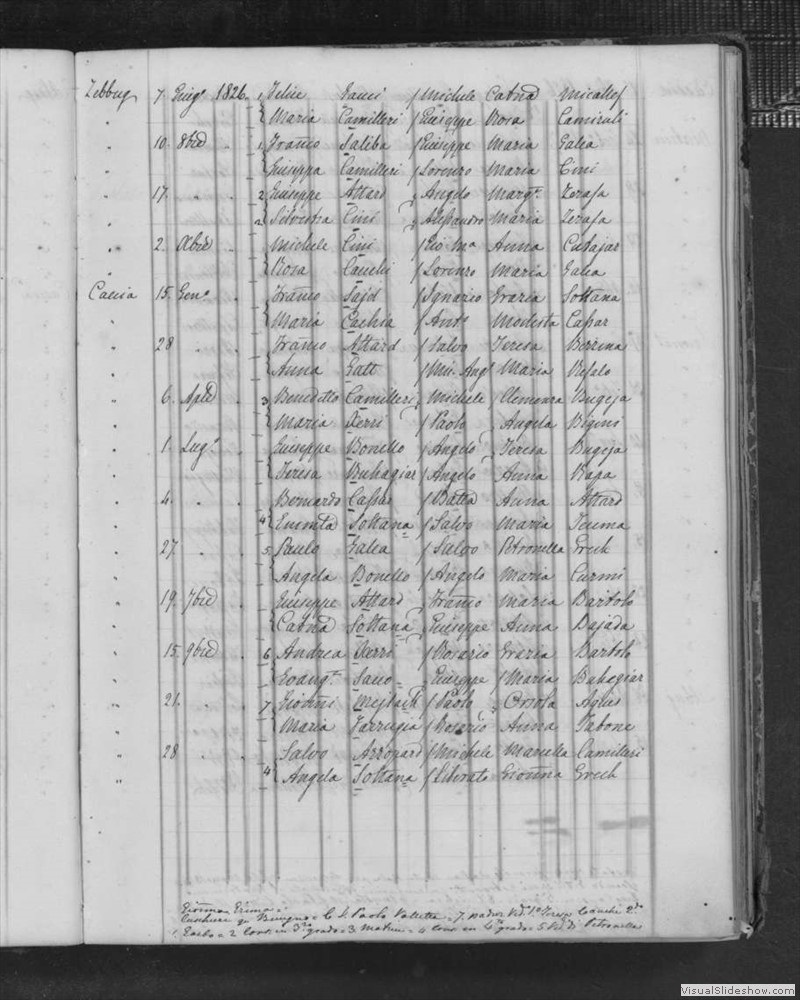 Zebbug 7. Giug.o 1826. 1 Felice Sauci / Michele Catnd Micallef
" Maria Camilleri / Giuseppe Rosa Camiruli
" 10. 8bre " 1 Franco Saliba / Giuseppe Maria Galea
" Giuseppa Camilleri / Lorenzo Maria Cini
" 17. " " 2 Giuseppe Attard / Angelo Marg.ta Zerafa
" 2 Silvestra Cini / Alessandro Maria Zerafa
" 2. Xbre " Michele Cini / Pio Ma Anna Cutajar
" Rosa Cauchi / Lorenzo Maria Galea
Caccia 15. Gen.o " Franco Said / Ignazio Grazia Soltana
" Maria Cachia / Ant.o Modesta Cassar
" 28 " " Franco Attard / Salvo Teresa Bezzina
" Anna Gatt / Mic. Ang.o Maria Refalo
" 6. Aple " 3 Benedetto Camilleri / Michele Clemenza Bugeja
" Maria Xerri / Paolo Angela Bigini
" 1. Lug.o " Giuseppe Bonello / Angelo Teresa Bugeja
" Teresa Buhagiar / Angelo Anna Rapa
" 4. " " Bernardo Cassar / Batta Anna Attard
" 4 Soltana / Salvo Maria Teuma
" 27. " " 5 Paulo Galea / Salvo Petronella Grech
" Angela Bonello / Angelo Maria Curmi
" 19. 7bre " Giuseppe Attard / Franco Maria Bartolo
" Catnd Soltana / Giuseppe Anna Bajada
" 15. 9bre " 6 Andrea Xerri / Rosario Grazia Bartolo
" Evang.ta / Giuseppe / Maria Buhagiar
" 21. " " 7 Gioñi Mejlach / Paolo Orsola Agius
" Maria Farrugia / Rosario Anna Tabone
" 28 " " Salvo Azzopard / Michele Mariella Camilleri
" 4 Angela Soltana / Liberato Gioñna Grech
Gioñna
C. S. Paolo Valletta = 7. Ved.o 1o Teresa Cauchi 2.do
1. = 2 Cons. in 3.o grado = 3 = 4 Cons. in 4.o grado = 5 Ved. di Petronella
VisualSlideshow.com